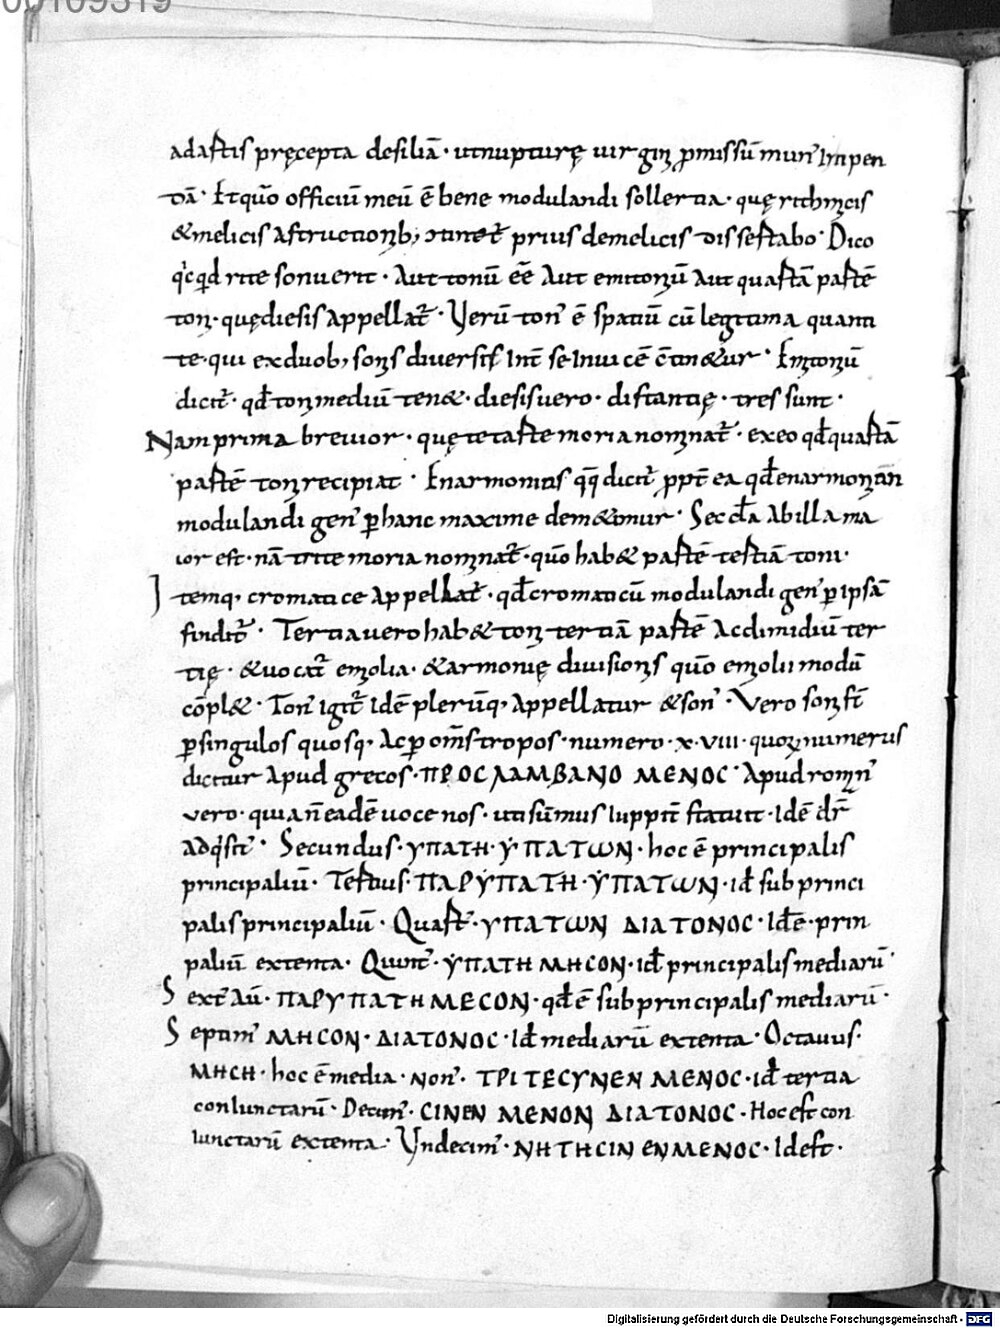 00109319
adastis pręcepta desiliā · ut nupturę uirgini p̄missū mun' Impen
dā · Et quō officiū meū ē bene modulandi sollertia · quę rithmicis
& melicis astructionib; prius de melicis disseftabo · Dico
rite sonuerit · Aut tonū ēē Aut emitoniū Aut quaftā paftē
toni · quę diesis Appellat̄ · Verū ton' ē spatiū cū legitima quanti
te · qui ex duob; sonis diuersis Int̄ se Inuicē c̄tin&ur · Emitoniū
dicit̄ · qđ toni mediū ten& · diesis uero · distantię · tres sunt ·
Nam prima breuior · quę tetaftemoria nominat̄ · ex eo qđ quaftā
paftē toni recipiat · Enarmonios qq̄ dicit̄ p̄pt̄ ea qđ enarmonian
modulandi gen' ꝑ hanc maxime dem&imur · Secđa Ab illa ma
ior est · nā tritemoria nominat̄ · quō hab& paftē teftiā toni ·
Item q; cromatice Appellat̄ · qđ cromaticū modulandi gen' ꝑ ipsā
findit̄ · Tertia uero hab& toni tertiā paftē Ac dimidiū ter
tię · & uocat̄ emiolia · & armonię diuisionis quō emiolii modū
cōpl& · Ton' igit̄ Idē plerūq; Appellatur & son' · Vero soni st̄
ꝑ singulos quosq; Ac ꝑ om̄s tropos · numero · x · viii · quoꝝ numerus
dicitur Apud grecos · ΠΡΟСΛΑΜΒΑΝΟ ΜΕΝΟС · Apud romn̄
vero · quia n̄ eadē uoce nos · uti sūmus Iuppit̄ statuit · Idē dr̄
Adq̇sit' · Secundus · ΥΠΑΤΗ · ΥΠΑΤωΝ · hoc ē principalis
principaliū · Teftius · ΠΑΡΥΠΑΤΗ · ΥΠΑΤωΝ · iđ subprinci
palis principaliū · Quaft' · ΥΠΑΤωΝ ΔΙΑΤΟΝΟС · Idē · prin
paliū extenta · Quint' · ΥΠΑΤΗ ΜΗСΟΝ · iđ principalis mediarū ·
Sext' Aū · ΠΑΡΥΠΑΤΗ ΜΕСΟΝ · qđ ē subprincipalis mediarū ·
Septim' ΜΗСΟΝ · ΔΙΑΤΟΝΟС · Iđ mediarū extenta · Octauus ·
ΜΗСΗ · hoc ē media · Non' · ΤΡΙΤΕСΥΝΕΝ ΜΕΝΟС · iđ tertia
coniunctarū · Decim' · СΙΝΕΝ ΜΕΝΟΝ ΔΙΑΤΟΝΟС · Hoc est con
iunctarū extenta · Vndecim' · ΝΗΤΗСΙΝ ΕΝΜΕΝΟС · Idest ·
Digitalisierung gefördert durch die Deutsche Forschungsgemeinschaft - DFG